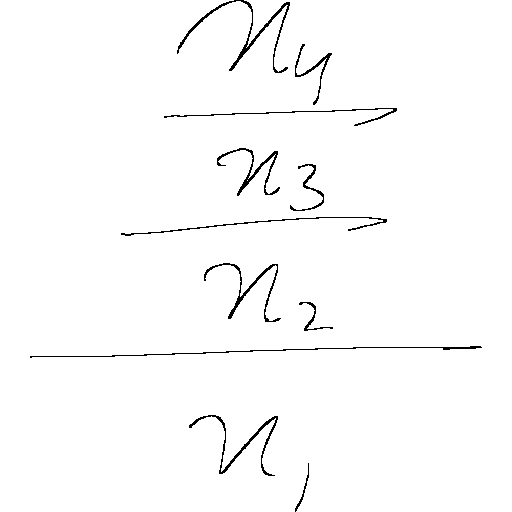 n₄
n₃
n₂
n₁